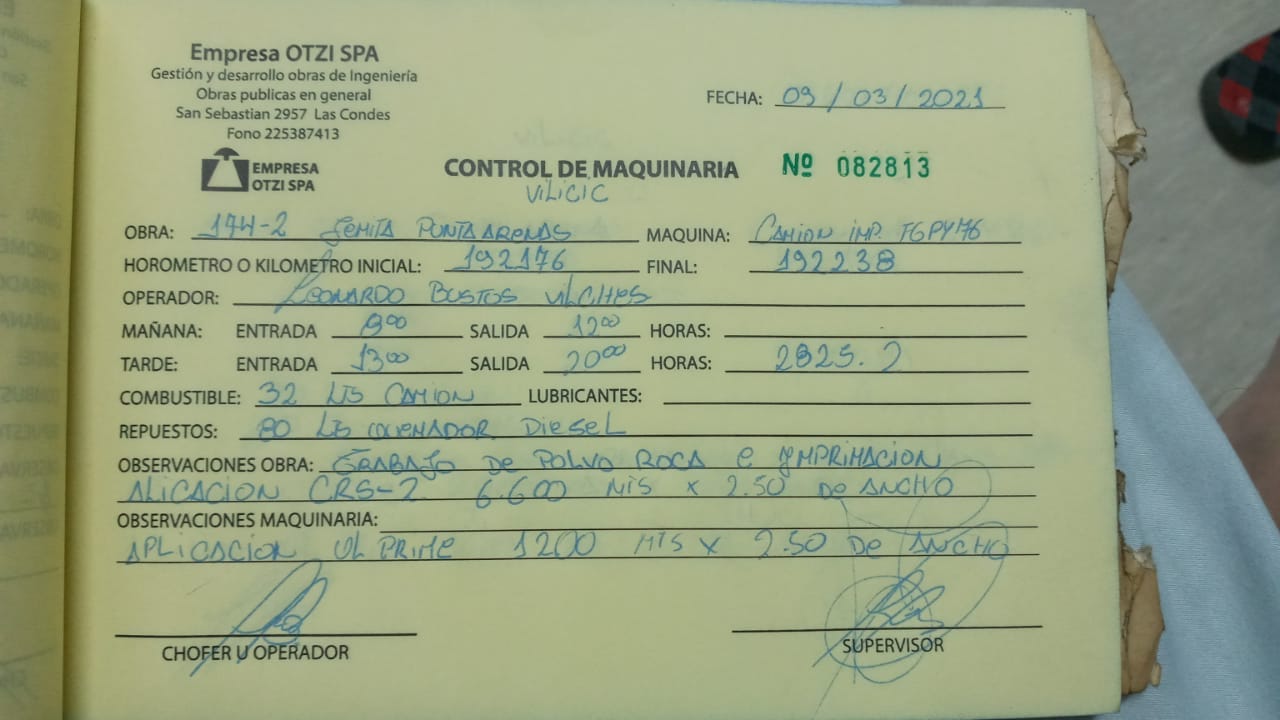 Empresa OTZI SPA
Gestión y desarrollo obras de Ingeniería
Obras publicas en general
San Sebastian 2957 Las Condes
Fono 225387413
FECHA: 09 / 03 / 2021
EMPRESA
OTZI SPA
CONTROL DE MAQUINARIA Nº 082813
VILICIC
OBRA: 174-2 PUNTA ARENAS MAQUINA: CAMION IMP.
HOROMETRO O KILOMETRO INICIAL: 192176 FINAL: 192238
OPERADOR: LEONARDO BUSTOS VILCHES
MAÑANA: ENTRADA SALIDA 12°° HORAS:
TARDE: ENTRADA 13°° SALIDA 20°° HORAS: 2825.2
COMBUSTIBLE: 32 LTS CAMION LUBRICANTES:
REPUESTOS: 80 LTS QUEMADOR DIESEL
OBSERVACIONES OBRA: TRABAJO DE POLVO ROCA E IMPRIMACION
ALICACION CRS-2 6.600 MTS x 2.50 DE ANCHO
OBSERVACIONES MAQUINARIA:
APLICACION UL PRIME 1200 MTS x 2.50 DE ANCHO
CHOFER U OPERADOR SUPERVISOR